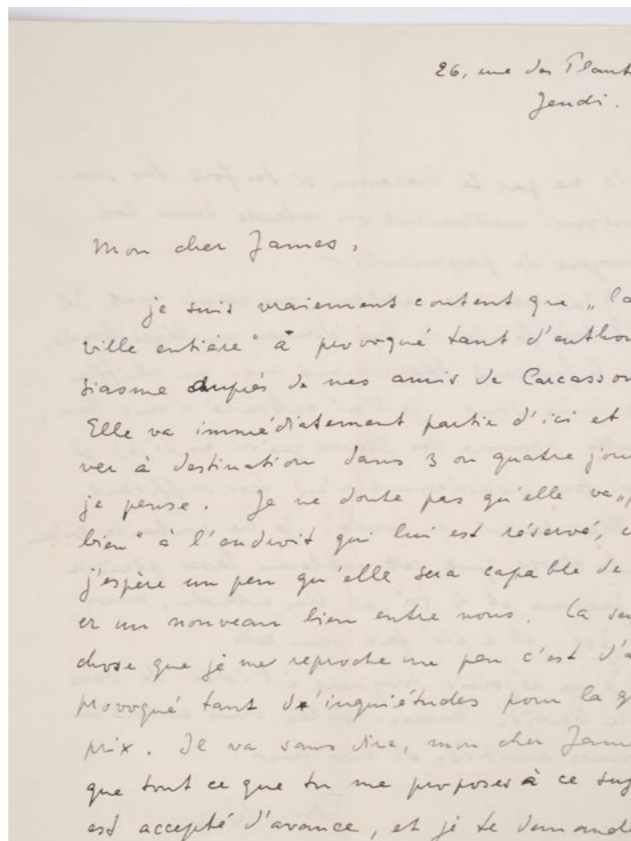 26, rue des Plant
Jeudi.
Mon cher James,
je suis vraiement content que „la
ville entière" à provoqué tant d'enthou
siasme auprès de mes amis de Carcasson
Elle va immédiatement partir d'ici et
ver à destination dans 3 ou quatre jour
je pense. Je ne doute pas qu'elle va „
bien" à l'endroit qui lui est réservé,
j'espère un peu qu'elle sera capable de
er un nouveau lien entre nous. La seu
chose que je me reproche un peu c'est d'a
provoqué tant d'inquiétudes pour la q
prix. Il va sans dire, mon cher Jame
que tout ce que tu me proposes à ce suj
est accepté d'avance, et je te demande